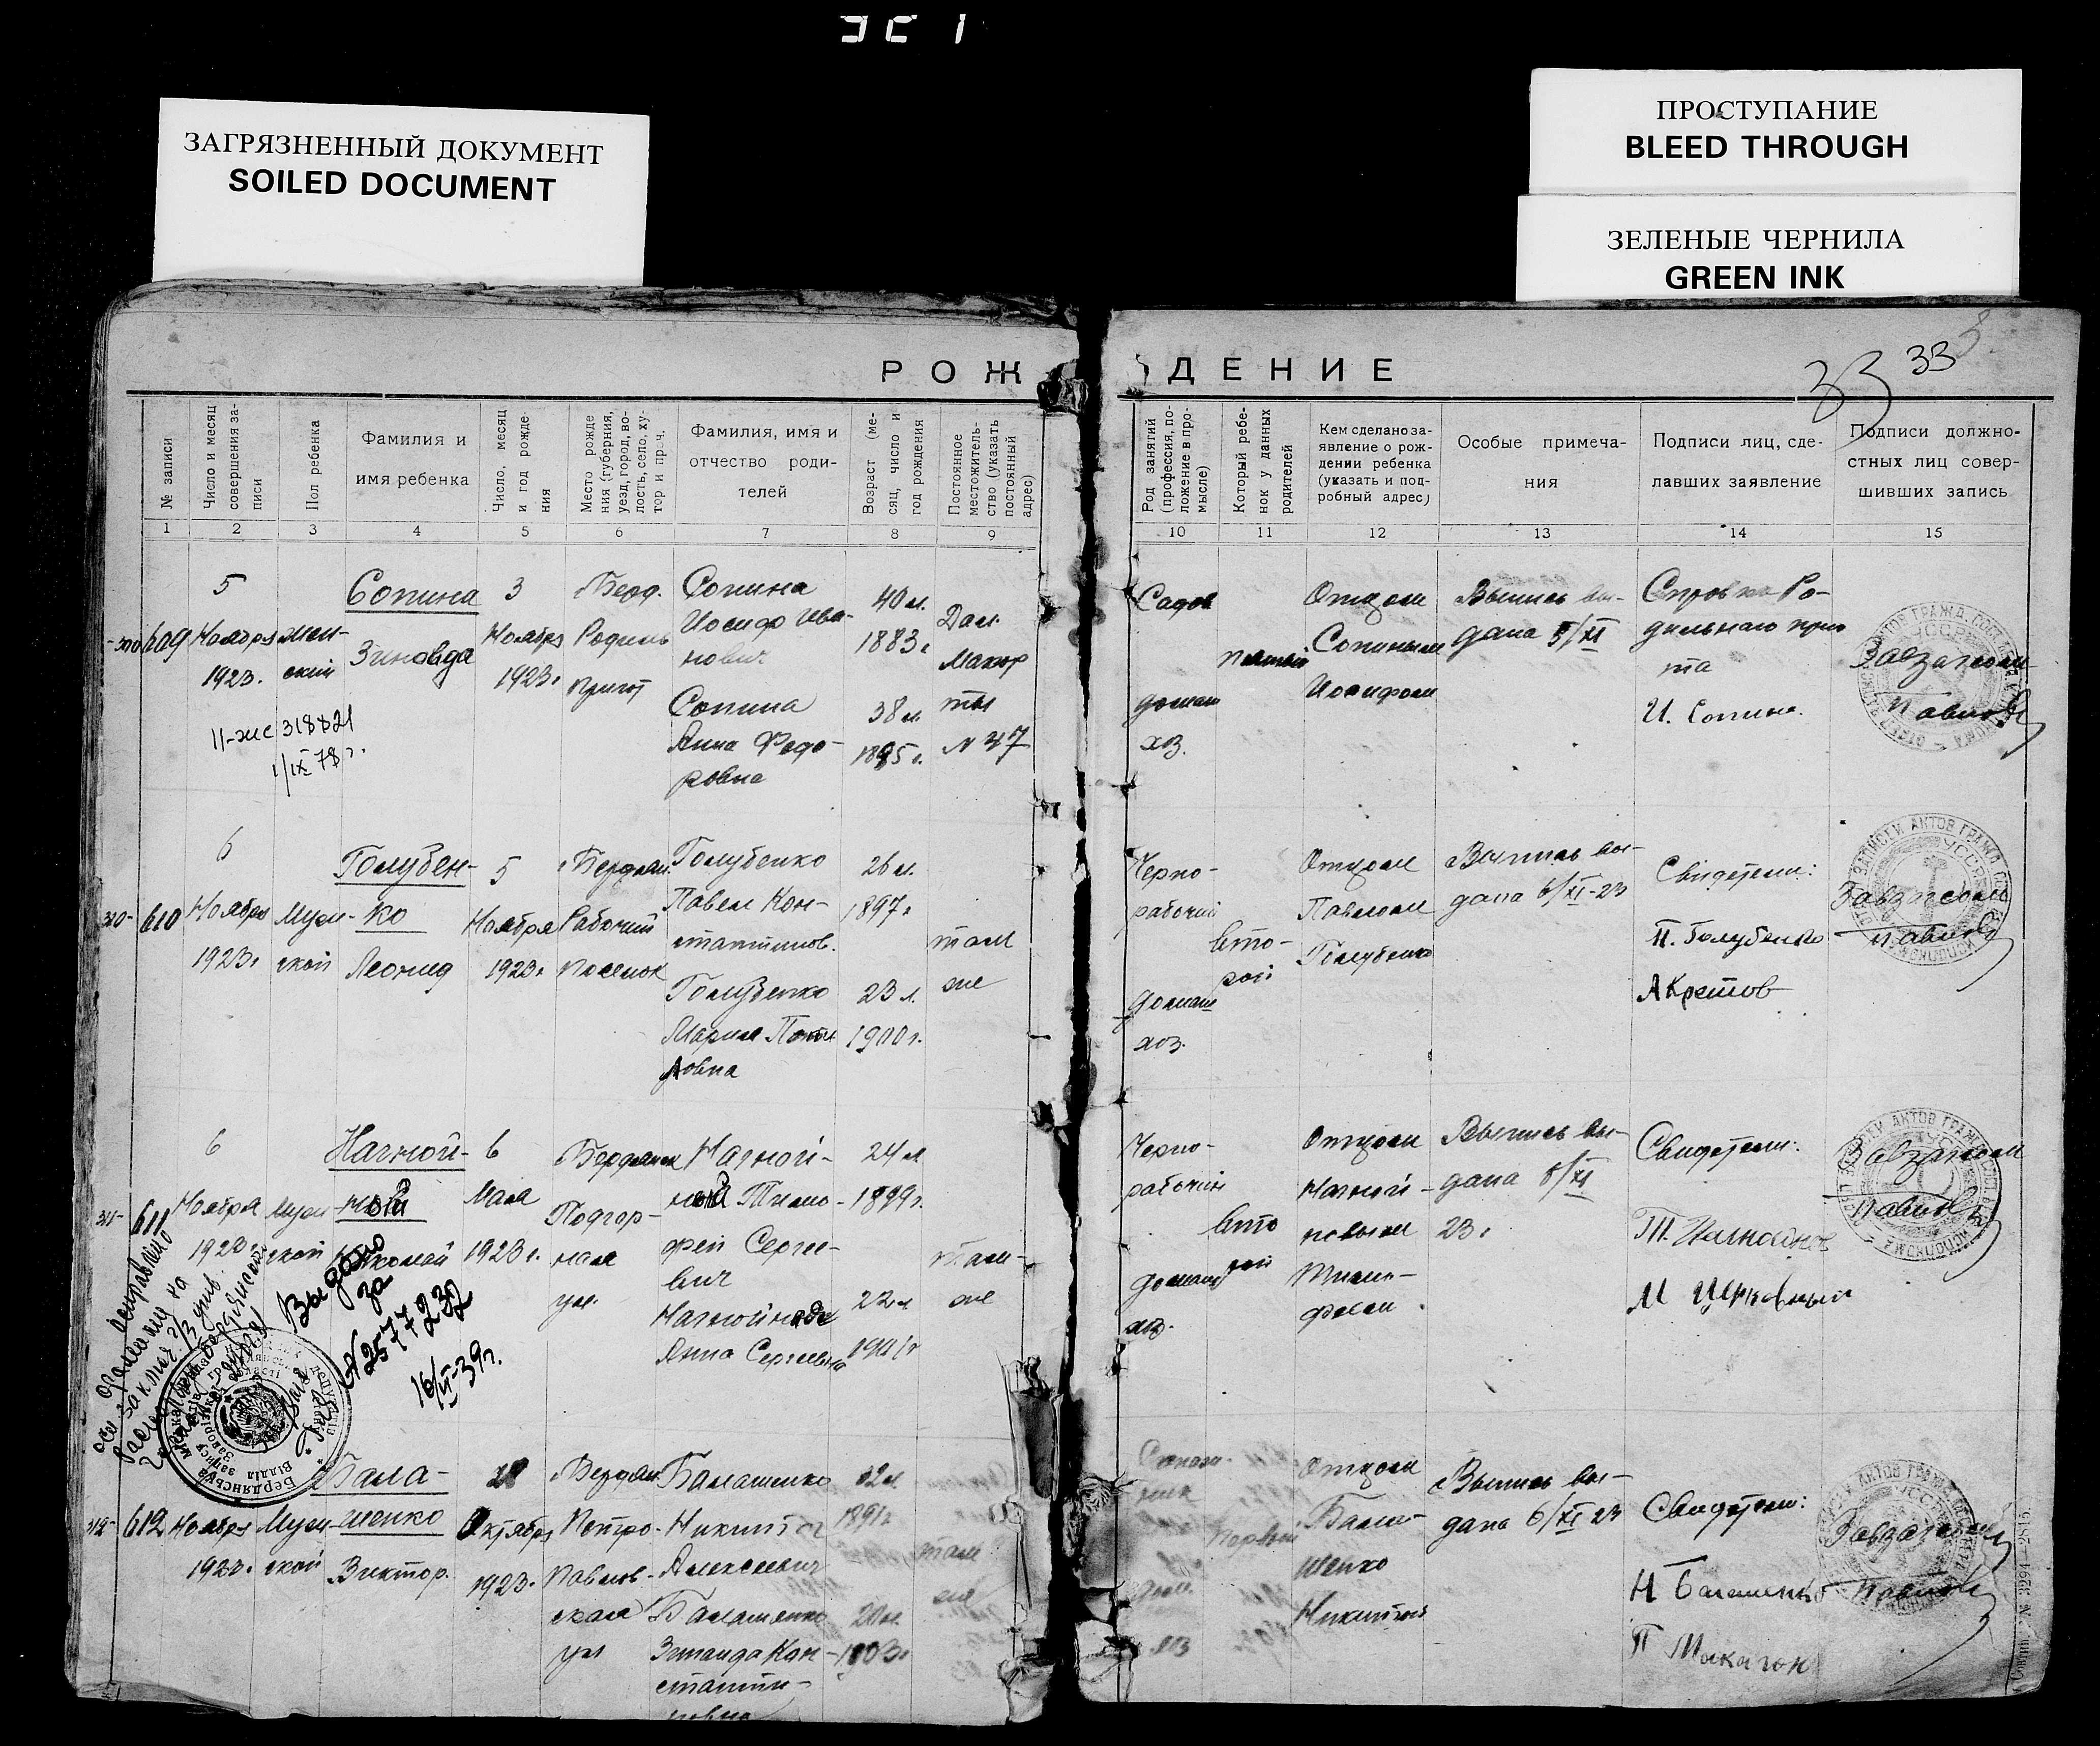 ЗАГРЯЗНЕННЫЙ ДОКУМЕНТ
SOILED DOCUMENT
ПРОСТУПАНИЕ
BLEED THROUGH
ЗЕЛЕНЫЕ ЧЕРНИЛА
GREEN INK
33 33
РОЖДЕНИЕ
№ записи
Число и месяц
совершения за-
писи
Пол ребенка
Фамилия и
имя ребенка
Число, месяц
и год рожде-
ния
Место рожде
ния (губерния,
уезд, город, во-
лость, село, ху-
тор и проч.
Фамилия, имя и
отчество роди-
телей
Возраст (ме-
сяц, число и
год рождения
Постоянное
местожитель-
ство (указать
постоянный
адрес)
Род занятий
(профессия, по-
ложение в про-
мысле)
Который ребе-
нок у данных
родителей
Кем сделано за-
явление о рож-
дении ребенка
(указать и под-
робный адрес)
Особые примеча-
ния
Подписи лиц, сде-
лавших заявление
Подписи должно-
стных лиц совер-
шивших запись
1 2 3 4 5 6 7 8 9 10 11 12 13 14 15
609
5
Ноября
1923.
жен-
ский
Сопина
Зинаида
3
Ноября
1923г
Берд.
Родиль
приют
Сопина
Иосиф Ива-
нович
Сопина
Анна Федо-
ровна
40 л.
1883г
38 л.
1895г.
Дал.
Макор
ты
N 47
Садов
домаш
хоз.
пятый
Отцом
Сопиным
Иосифом
Выпись вы-
дана 5/XI
Справка Ро-
дильнаго прию
та
И. Сопина.
Завзагсом
Павлов
II-жс 318821
1/IX 78г.
310- 610
6
Ноября
1923г
Муж-
ской
Голубен-
ко
Леонид
5
Ноября
1923г
Бердян.
Рабочий
поселок
Голубенко
Павел Кон-
стантинов.
Голубенко
Мария
ловна
26 л.
1897г
23 л.
1900г.
там
же
Черно-
рабочий
домаш
хоз.
вто-
рой
Отцом
Павлом
Голубенко
Выпись вы-
дана 6/XI-23
Свидетели:
П. Голубенко
А Кретов
Завзагсом
Павлов
311- 611
6
Ноября
1923г
Муж
ской
Нагной-
ной
Николай
6
Мая
1923г.
Бердянск
Подгор-
ная
ул.
Нагной-
ной Тимо-
фей Сергее-
вич
Нагнойная
Анна Сергеевна
24 л
1899г.
22 л
1901г
там-
же
Черно-
рабочий
домаш
хоз.
вто
рой
Отцом
Нагной-
новым
Тимо-
феем
Выпись вы-
дана 6/XI
23г
Свидетели:
Т. Нагнойной
М Церковный
Завзагсом
Павлов
Выдано
за
N 2577232
16/VI-39г.
312- 612
Ноября
1923г
Муж
ской
Бала-
шенко
Виктор.
Октября
1923г
Бердян.
Петро-
Павлов-
ская
ул
Балашенко
Никита
Алексеевич
Балашенко
Зинаида Кон-
стантин-
овна
32 л.
1891г
20 л.
1903г
там
же
хоз
Первый
Отцом
Бала-
шенко
Никитой
Выпись вы-
дана 6/XI 23
Свидетели:
Н Балашенко
П Макагон
Завзагсом
Павлов